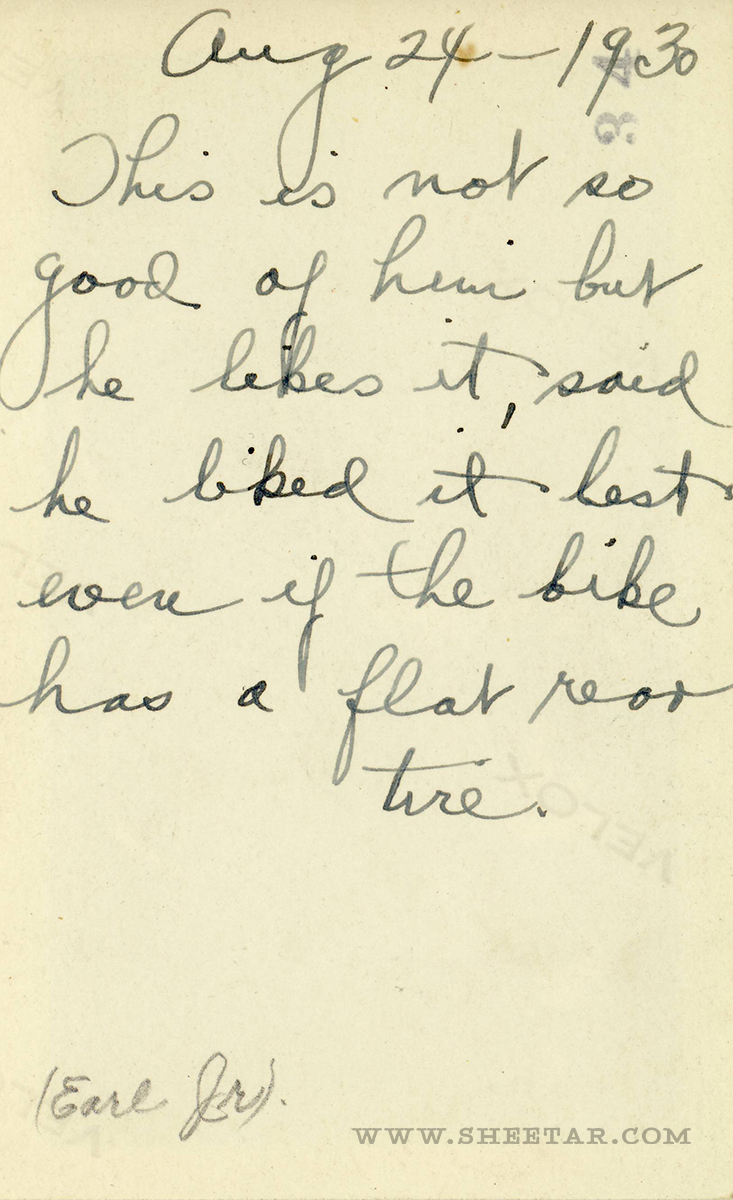 Aug 24 - 1930
34
This is not so
good of him but
he likes it, said
he liked it best
even if the bike
has a flat rear
tire.
VELOX
(Earl Jr).
WWW.SHEETAR.COM